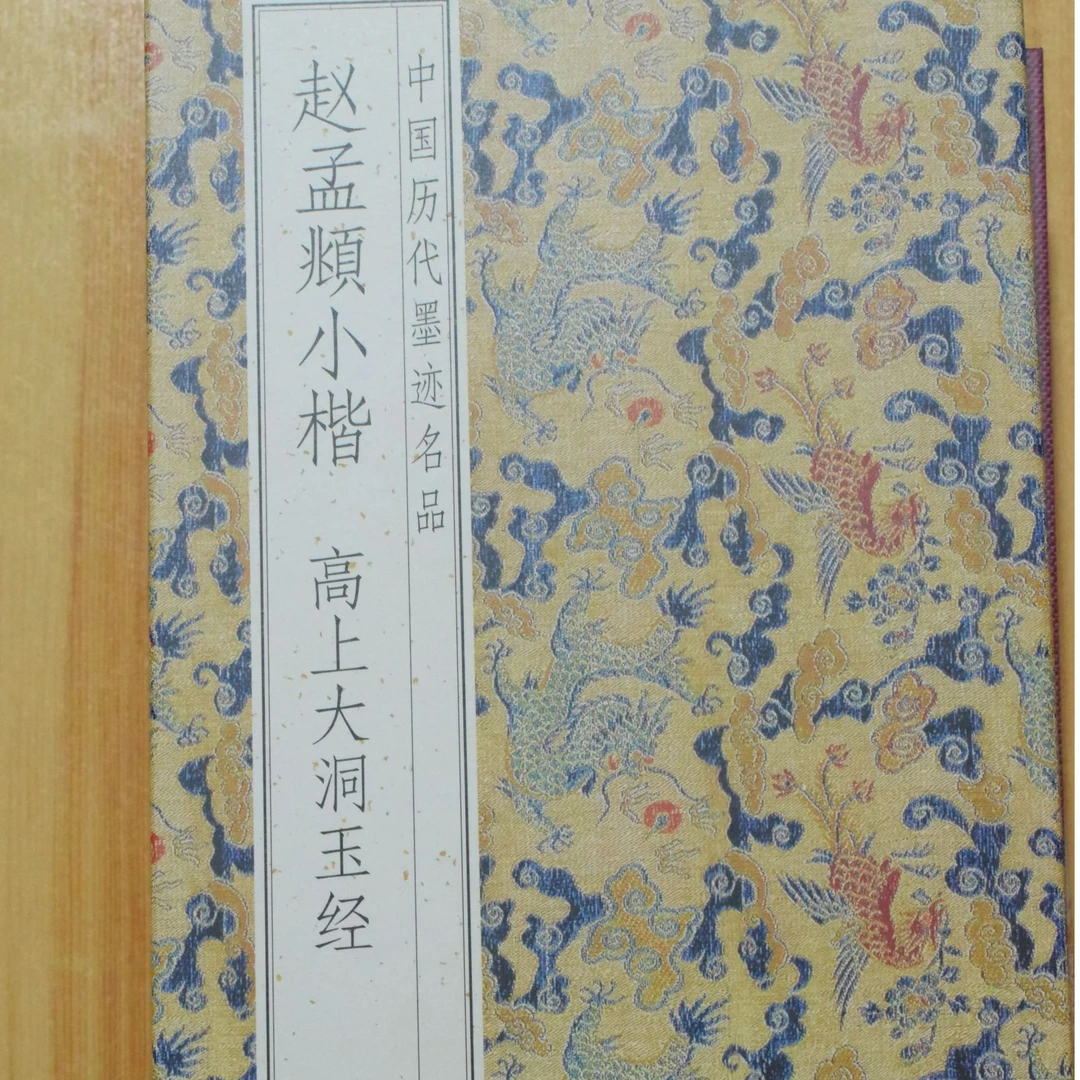 中国历代墨迹名品
赵孟頫小楷 高上大洞玉经